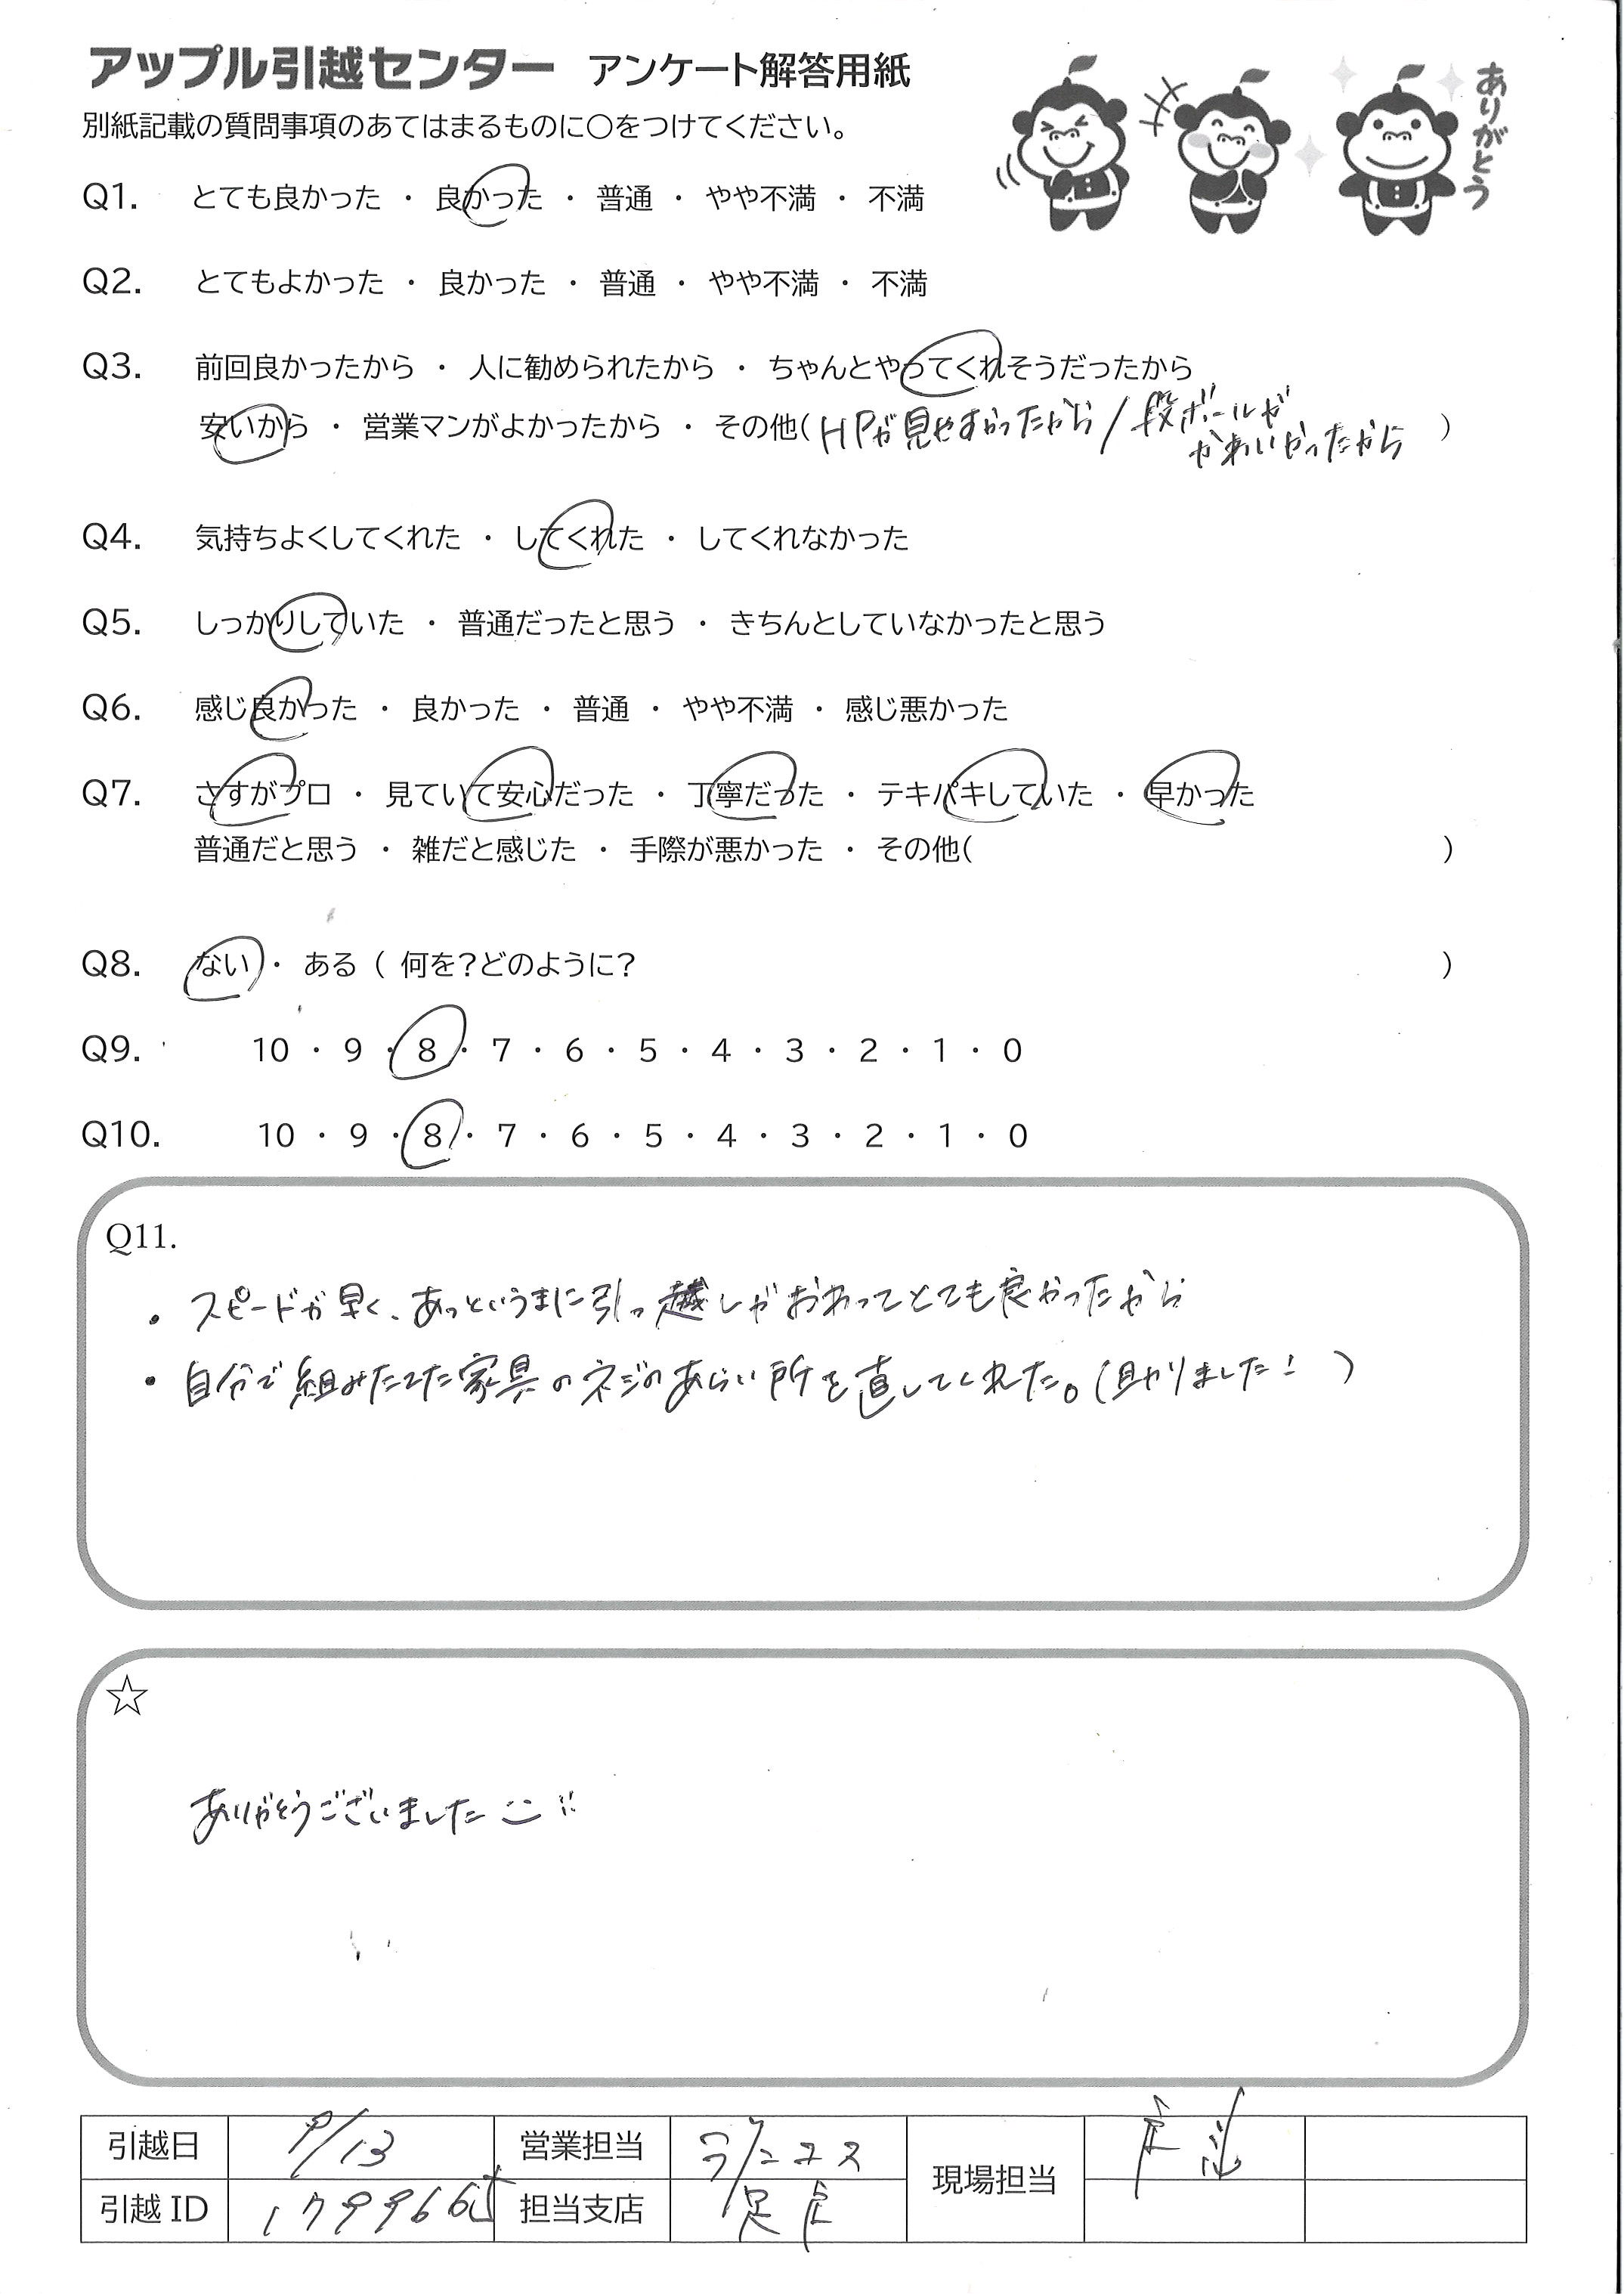 アップル引越センター アンケート解答用紙
ありがとう
別紙記載の質問事項のあてはまるものに○をつけてください。
Q1. とても良かった ・ 良かった ・ 普通 ・ やや不満 ・ 不満
Q2. とてもよかった ・ 良かった ・ 普通 ・ やや不満 ・ 不満
Q3. 前回良かったから ・ 人に勧められたから ・ ちゃんとやってくれそうだったから
安いから ・ 営業マンがよかったから ・ その他(HPが見やすかったから/段ボールが
かわいかったから )
Q4. 気持ちよくしてくれた ・ してくれた ・ してくれなかった
Q5. しっかりしていた ・ 普通だったと思う ・ きちんとしていなかったと思う
Q6. 感じ良かった ・ 良かった ・ 普通 ・ やや不満 ・ 感じ悪かった
Q7. さすがプロ ・ 見ていて安心だった ・ 丁寧だった ・ テキパキしていた ・ 早かった
普通だと思う ・ 雑だと感じた ・ 手際が悪かった ・ その他( )
Q8. ない ・ ある ( 何を?どのように? )
Q9. 10 ・ 9 ・ 8 ・ 7 ・ 6 ・ 5 ・ 4 ・ 3 ・ 2 ・ 1 ・ 0
Q10. 10 ・ 9 ・ 8 ・ 7 ・ 6 ・ 5 ・ 4 ・ 3 ・ 2 ・ 1 ・ 0
Q11.
・スピードが早く、あっというまに引っ越しがおわってとても良かったから
・自分で組みたてた家具のネジのあらい所を直してくれた。(助かりました! )
☆
ありがとうございました
引越日 9/13 営業担当 現場担当
引越ID 1799665 担当支店